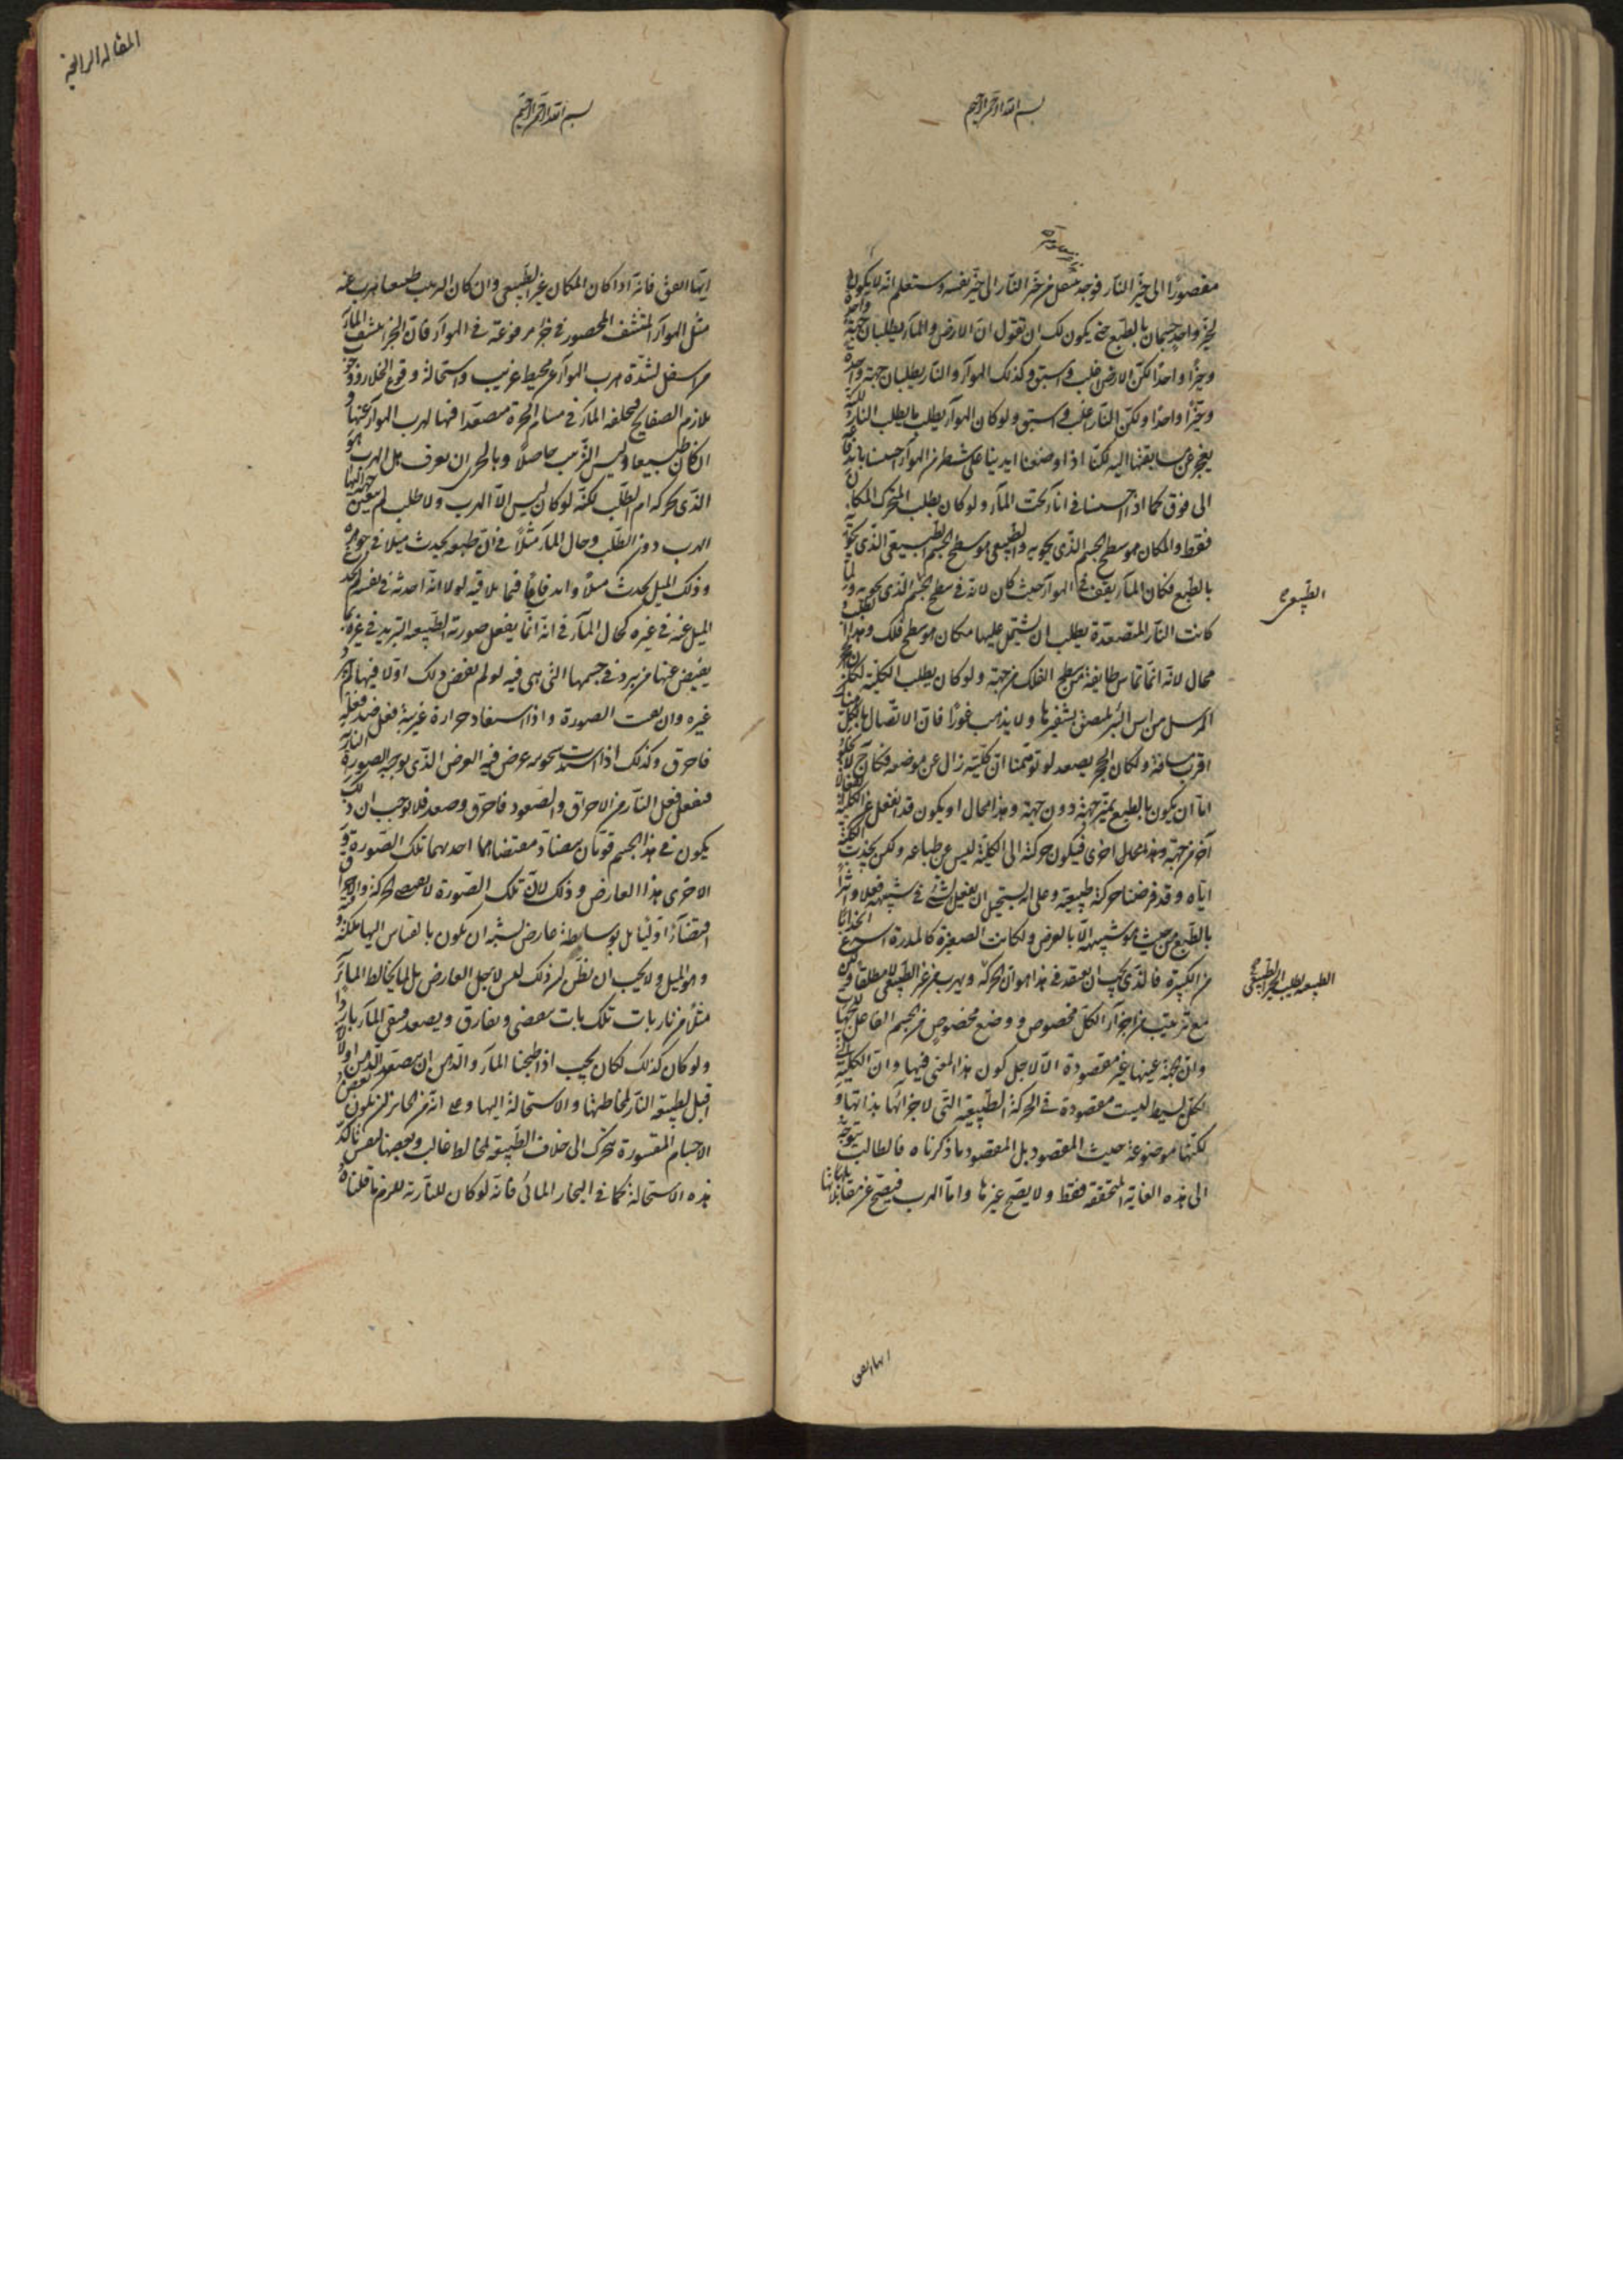 بسم الله الرحمن الرحيم
مقصورًا الى حيّز النّار فوجد منتقل من حيّز النّار الى حيّز نفسه وستعلم انّه لا يكون
لحيّز واحد جسمان بالطبع حتى يكون لك ان تقول انّ الارض والماء يطلبان جهة واحدة
وحيّزًا واحدًا لكنّ الارض اغلب واسبق وكذلك الهواء والنّار يطلبان جهة واحدة
وحيّزًا واحدًا ولكنّ النّار اغلب واسبق ولو كان الهواء يطلب ما يطلب النار لكنه
يعجز عن مسابقتها اليه لكنّا اذا وضعنا ايدينا على شطر من الهواء احسسنا باندفاعه
الى فوق كما اذا احسسنا فى اناء تحت الماء ولو كان يطلب المتحرك المكان
فقط والمكان هو سطح الجسم الذّى يحويه والطبيعى هو سطح الجسم الطبيعى الذى يحويه
بالطبع فكان الماء يقف فى الهواء حيث كان لانه فى سطح الجسم الذى يحويه ولما
كانت النّار المتصعّدة يطلب ان يشتمل عليها مكان هو سطح فلك وهذا الطلب
محال لانه انّما تماس طايفة من سطح الفلك من جهة ولو كان يطلب الكلّية لكان الحجر
المرسل من راس البئر يلتصق بشفيرها ولا يذهب غورًا فان الاتّصال بالكل هناك
اقرب مسافة ولكان الحجر يصعد لو توهّمنا انّ كلّيته زال عن موضعه فكان
امّا ان يكون بالطبع يميّز جهة دون جهة وهذا محال او يكون قد انفعل عن الكلّية
آخر من جهة وهذا محال اخرى فيكون حركته الى الكلّية ليس عن طباعه ولكن بجذب الكلّية
ايّاه وقد فرضنا حركته طبيعيّة وعلى انّه يستحيل ان يفعل الشئ فى شبيهه فعلا واثرًا
بالطّبع من حيث هو شبيهه الّا بالعرض ولكانت الصغيرة كالمدرة اسرع انجذابًا
من الكبيرة فالّذى يجب ان يعتقد فى هذا هو ان الحركة ويهرب من غير الطّبيعى لا مطلقا ولكن
مع ترتيب من اجزاء الكل مخصوص ووضع مخصوص من الجسم الفاعل للجهات
وانّ الجهة عينها غير مقصودة الّا لاجل كون هذا المعنى فيها وان الكلّية
لكل بسيط ليست مقصودة فى الحركة الطّبيعيّة التى لاجزائها بذاتها
لكنّها موضوعة حيث المقصود بل المقصود ما ذكرناه فالطالب يتوجّه
الى هذه الغاية المحققة فقط ولا يصحّ غيرها وامّا الهرب فيصحّ عن مقابلاتها
الطبيعة تطلب الحيز الطبيعى
ايها اتفق
المقاله الرابعة
بسم الله الرحمن الرحيم
ايّها اتفق فانه اذا كان المكان غير الطّبيعى وان كان الترتيب طبيعيا هرب عنه
مثل الهواء المنتشف المحصور فى آجرّة مرفوعة فى الهواء فان الآجر ينشف الماء
من اسفل لشدّة هرب الهواء عن محيط غريب واستحالة وقوع الخلاء ووجوب
تلازم الصفايح فيخلفه الماء فى مسام الآجرة متصعّدا فيها لهرب الهواء عنها
الكان طبيعيا وليس الترتيب حاصلًا وبالحرى ان يعرف هل الهرب هو
الذّى يحركه ام الطّلب لكنّه لو كان ليس الّا الهرب ولا طلب لم يتعين جهة اليها
الهرب دون الطّلب وحال الماء مثلًا فى انّ طبيعته يحدث ميلا فى جوهره
وذلك الميل يحدث ميلًا واندفاعًا فيما يلاقيه لولا انّه احدثه فى نفسه لم يحدث
الميل عنه فى غيره كحال الماء فى انه انّما يفعل صورته الطّبيعيه التبريد فى غيره بما
يفيض عنها من برد فى جسمها التى هى فيه لو لم يفض ذلك اولا فيها لم يبرد
غيره وان بقيت الصورة واذا استفاد حرارة غريبة فعل ضد فعله
فاحرق وكذلك اذا عرض فيه العرض الذى يوجبه الصورة النارية
ففعل فعل النّار من الاحراق والصّعود فاحرق وصعد فلا يوجب ان ذلك
يكون فى هذا الجسم قوتان متضادّ مقتضاهما احدهما تلك الصّورة
الاخرى هذا العارض وذلك لانّ تلك الصّورة لا يقتضى الحركة والاحراق
اقتضاءً اوّليا بل بوساطة عارض يشبه ان يكون بالقياس اليها ملكة
وهو الميل ولا يجب ان يظنّ انّ ذلك ليس لاجل العارض بل لما يخالط الماء
مثلًا من ناريات تلك يفارق ويصعد فيبقى الماء باردا
ولو كان كذلك لكان يجب اذا طبخنا الماء والدهن ان يصعد الدّهن اولا
اقبل لطبيعة النّار لمخاطبتها والاستحالة اليها انّه من الجائز ان يكون بعض
الاجسام المقسورة يتحرك الى خلاف الطّبيعة لمخالط غالب وبعضها ليس كذلك
هذه الاستحالة كما فى البخار المائى فانّه لو كان للنّارية للزم ما قلناه